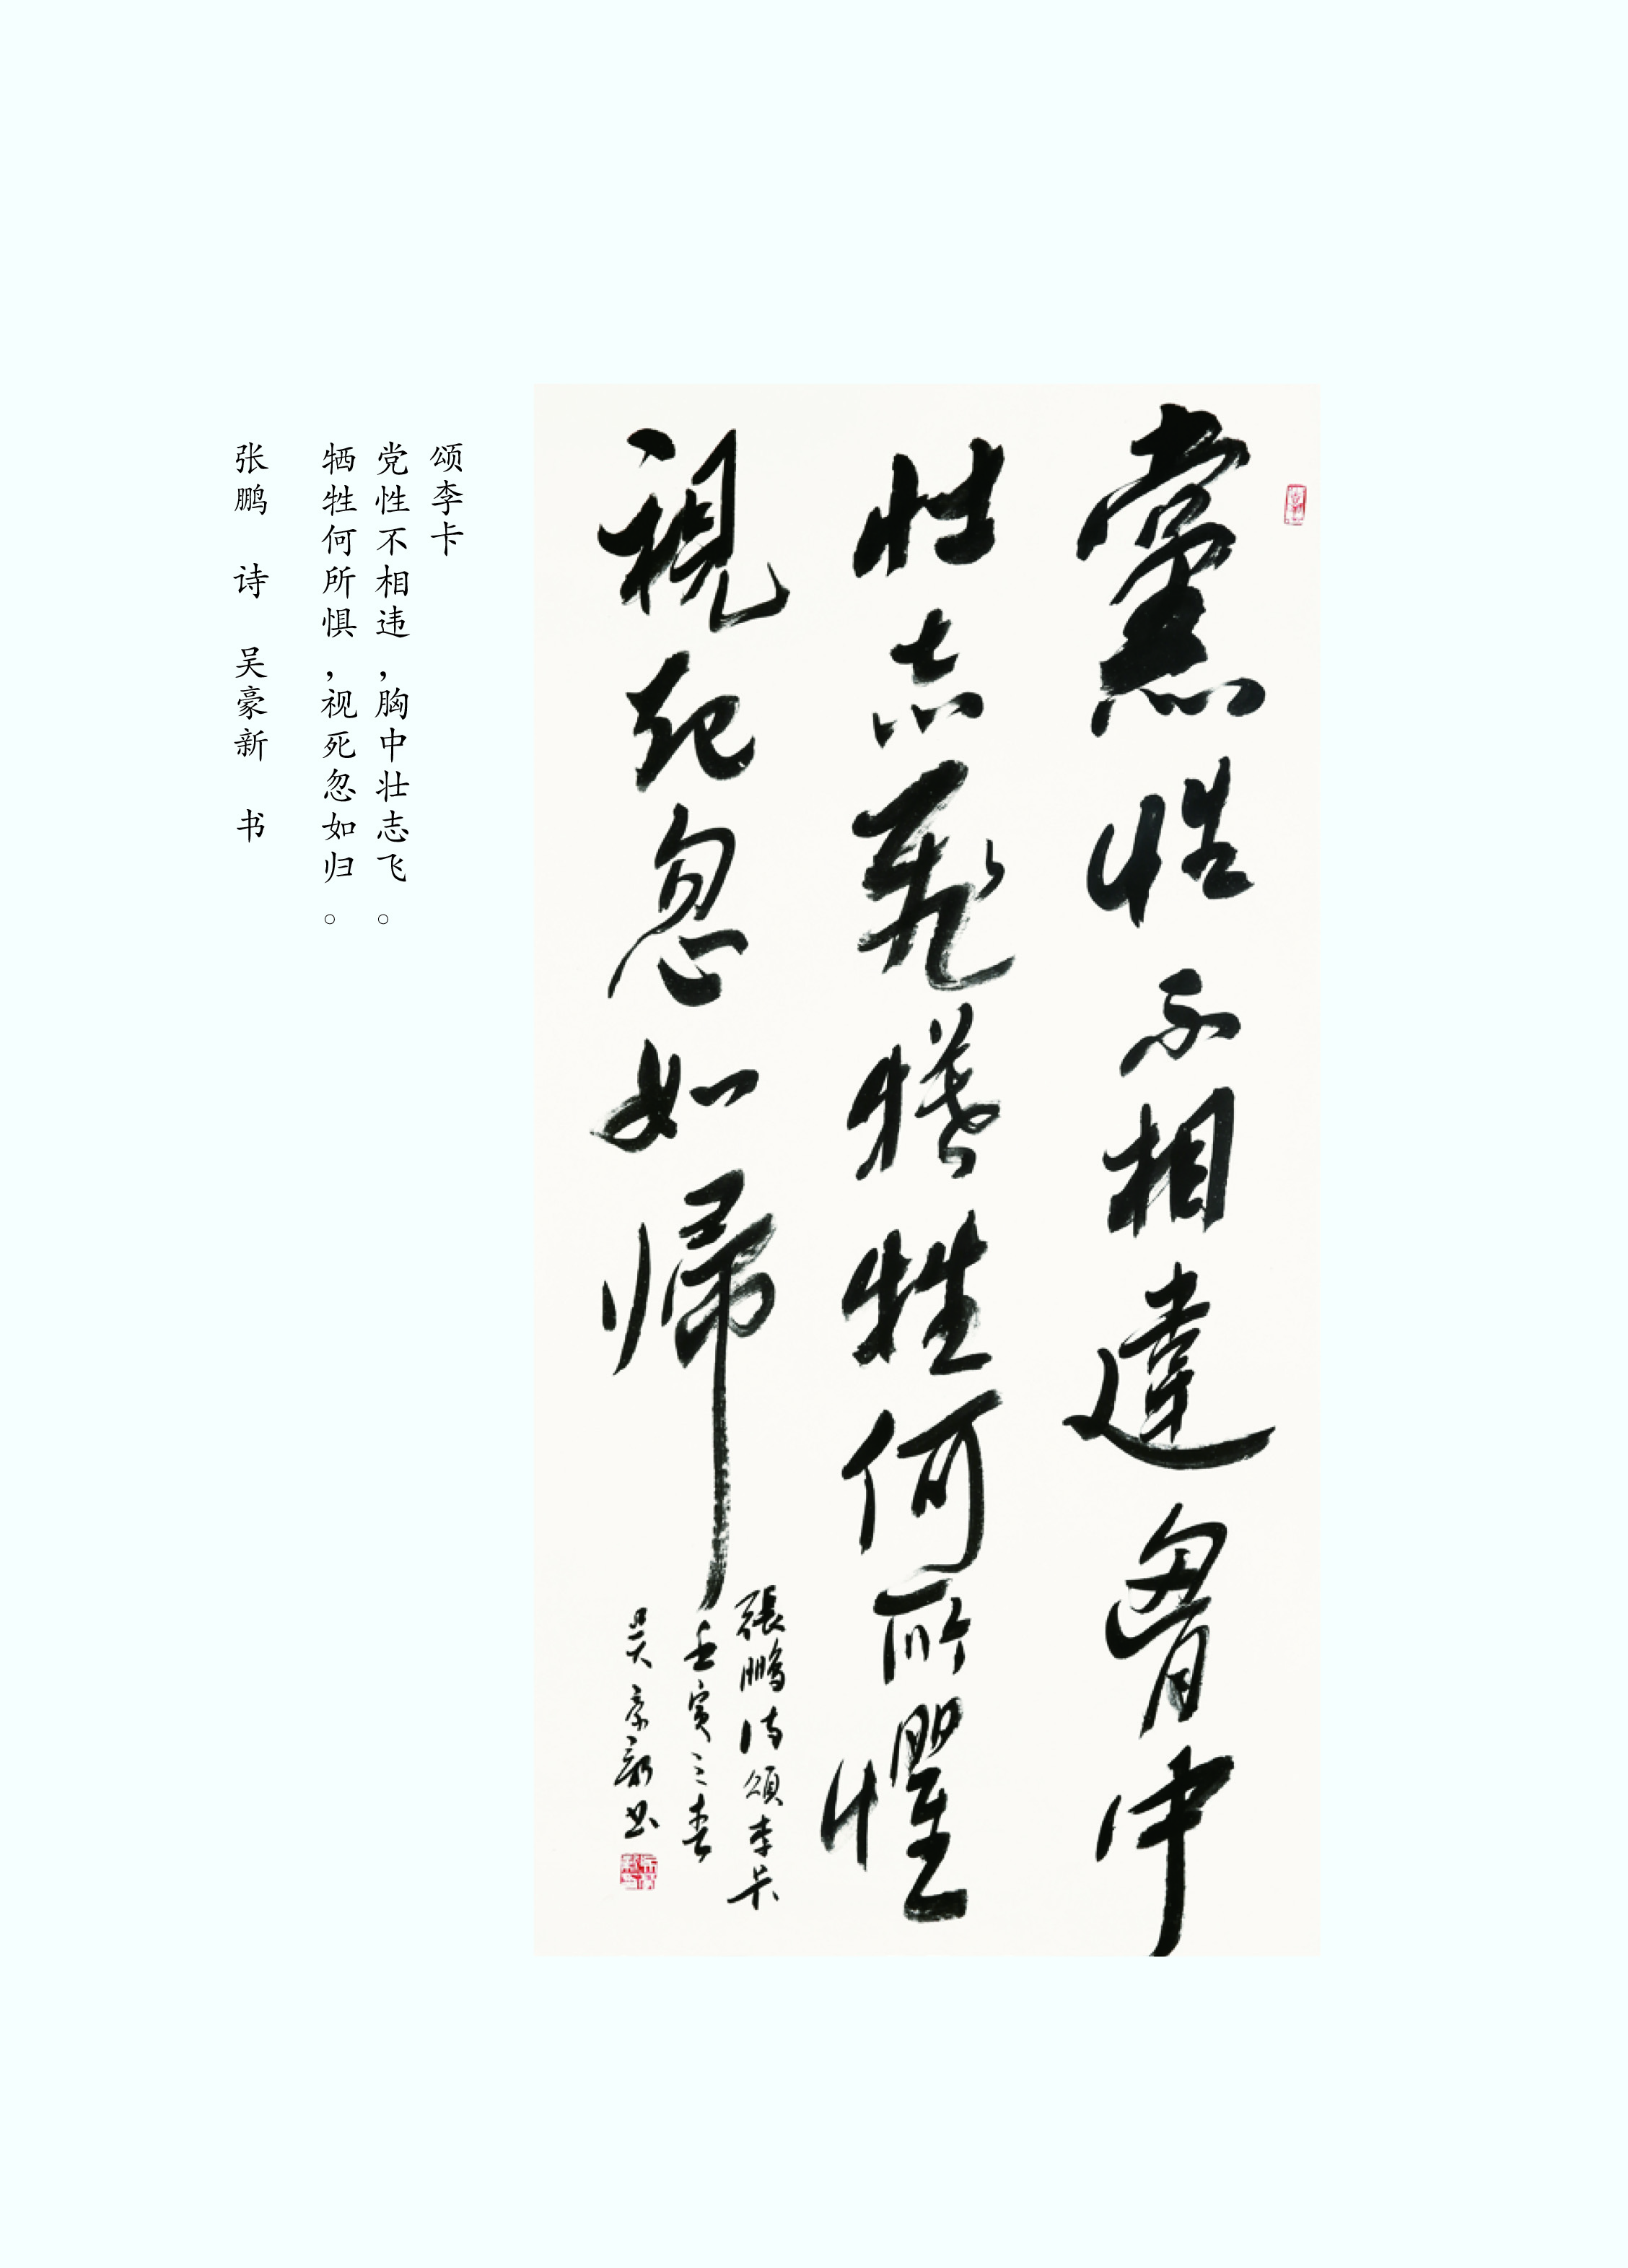 黨性不相違胷中
壯志飛犧牲何所懼
視死忽如歸
張鵬詩頌李卡
壬寅之春
吴豪新书
颂李卡
党性不相违，胸中壮志飞。
牺牲何所惧，视死忽如归。
张鹏 诗 吴豪新 书